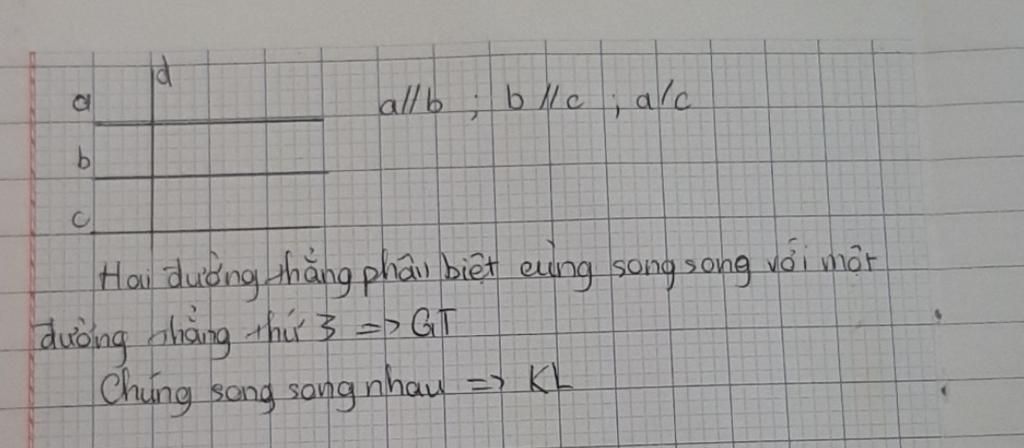 d
a
a//b ; b//c ; a/c
b
c
Hai đường thẳng phân biệt cùng song song với một
đường thẳng thứ 3 => GT
Chúng song song nhau => KL